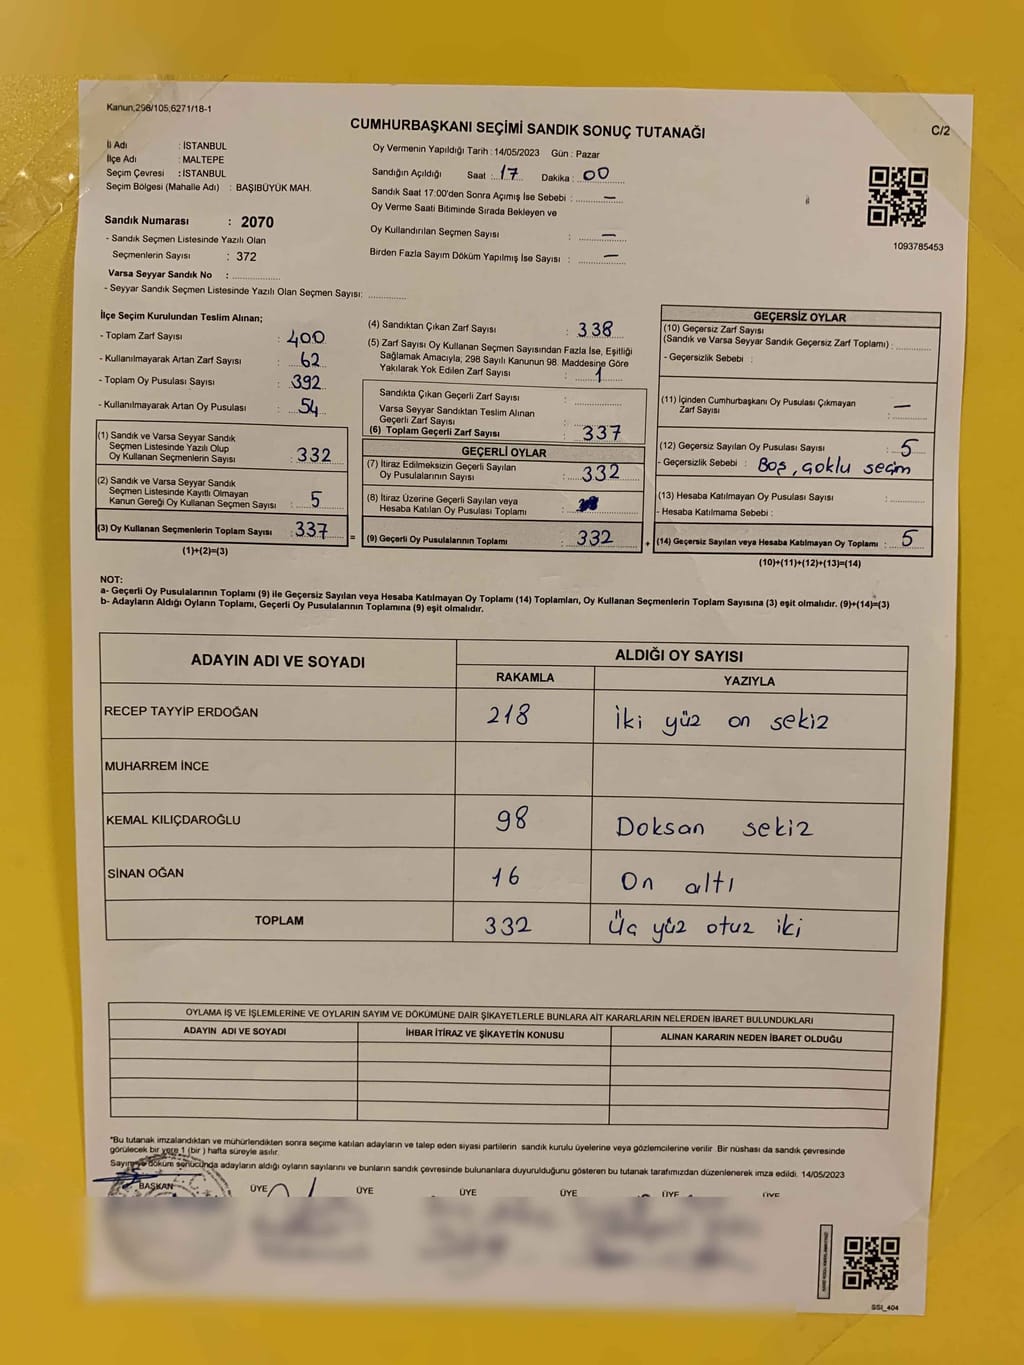 Kanun,298/105,6271/18-1
C/2
CUMHURBAŞKANI SEÇİMİ SANDIK SONUÇ TUTANAĞI
İl Adı : İSTANBUL
İlçe Adı : MALTEPE
Seçim Çevresi : İSTANBUL
Seçim Bölgesi (Mahalle Adı) : BAŞIBÜYÜK MAH.
Sandık Numarası : 2070
- Sandık Seçmen Listesinde Yazılı Olan
Seçmenlerin Sayısı : 372
Varsa Seyyar Sandık No :
- Seyyar Sandık Seçmen Listesinde Yazılı Olan Seçmen Sayısı:
Oy Vermenin Yapıldığı Tarih : 14/05/2023 Gün : Pazar
Sandığın Açıldığı Saat : 17 Dakika : 00
Sandık Saat 17:00'den Sonra Açımış İse Sebebi : —
Oy Verme Saati Bitiminde Sırada Bekleyen ve
Oy Kullandırılan Seçmen Sayısı : —
Birden Fazla Sayım Döküm Yapılmış İse Sayısı : —
1093785453
İlçe Seçim Kurulundan Teslim Alınan;
- Toplam Zarf Sayısı : 400
- Kullanılmayarak Artan Zarf Sayısı : 62
- Toplam Oy Pusulası Sayısı : 392
- Kullanılmayarak Artan Oy Pusulası : 54
(1) Sandık ve Varsa Seyyar Sandık
Seçmen Listesinde Yazılı Olup
Oy Kullanan Seçmenlerin Sayısı : 332
(2) Sandık ve Varsa Seyyar Sandık
Seçmen Listesinde Kayıtlı Olmayan
Kanun Gereği Oy Kullanan Seçmen Sayısı : 5
(3) Oy Kullanan Seçmenlerin Toplam Sayısı : 337 =
(1)+(2)=(3)
(4) Sandıktan Çıkan Zarf Sayısı : 338
(5) Zarf Sayısı Oy Kullanan Seçmen Sayısından Fazla İse, Eşitliği
Sağlamak Amacıyla, 298 Sayılı Kanunun 98. Maddesine Göre
Yakılarak Yok Edilen Zarf Sayısı : 1
Sandıkta Çıkan Geçerli Zarf Sayısı :
Varsa Seyyar Sandıktan Teslim Alınan
Geçerli Zarf Sayısı :
(6) Toplam Geçerli Zarf Sayısı : 337
GEÇERLİ OYLAR
(7) İtiraz Edilmeksizin Geçerli Sayılan
Oy Pusulalarının Sayısı : 332
(8) İtiraz Üzerine Geçerli Sayılan veya
Hesaba Katılan Oy Pusulası Toplamı :
(9) Geçerli Oy Pusulalarının Toplamı : 332 +
GEÇERSİZ OYLAR
(10) Geçersiz Zarf Sayısı
(Sandık ve Varsa Seyyar Sandık Geçersiz Zarf Toplamı) :
- Geçersizlik Sebebi :
(11) İçinden Cumhurbaşkanı Oy Pusulası Çıkmayan
Zarf Sayısı : —
(12) Geçersiz Sayılan Oy Pusulası Sayısı : 5
- Geçersizlik Sebebi : Boş, Çoklu seçim
(13) Hesaba Katılmayan Oy Pusulası Sayısı :
- Hesaba Katılmama Sebebi :
(14) Geçersiz Sayılan veya Hesaba Katılmayan Oy Toplamı : 5
(10)+(11)+(12)+(13)=(14)
NOT:
a- Geçerli Oy Pusulalarının Toplamı (9) ile Geçersiz Sayılan veya Hesaba Katılmayan Oy Toplamı (14) Toplamları, Oy Kullanan Seçmenlerin Toplam Sayısına (3) eşit olmalıdır. (9)+(14)=(3)
b- Adayların Aldığı Oyların Toplamı, Geçerli Oy Pusulalarının Toplamına (9) eşit olmalıdır.
ADAYIN ADI VE SOYADI ALDIĞI OY SAYISI
RAKAMLA YAZIYLA
RECEP TAYYİP ERDOĞAN 218 İki yüz on sekiz
MUHARREM İNCE
KEMAL KILIÇDAROĞLU 98 Doksan sekiz
SİNAN OĞAN 16 On altı
TOPLAM 332 Üç yüz otuz iki
OYLAMA İŞ VE İŞLEMLERİNE VE OYLARIN SAYIM VE DÖKÜMÜNE DAİR ŞİKAYETLERLE BUNLARA AİT KARARLARIN NELERDEN İBARET BULUNDUKLARI
ADAYIN ADI VE SOYADI İHBAR İTİRAZ VE ŞİKAYETİN KONUSU ALINAN KARARIN NEDEN İBARET OLDUĞU
*Bu tutanak imzalandıktan ve mühürlendikten sonra seçime katılan adayların ve talep eden siyasi partilerin sandık kurulu üyelerine veya gözlemcilerine verilir. Bir nüshası da sandık çevresinde
görülecek bir yere 1 (bir) hafta süreyle asılır.
Sayım ve döküm sonucunda adayların aldığı oyların sayılarını ve bunların sandık çevresinde bulunanlara duyurulduğunu gösteren bu tutanak tarafımızdan düzenlenerek imza edildi. 14/05/2023
BAŞKAN ÜYE ÜYE ÜYE ÜYE ÜYE ÜYE
SSI_404